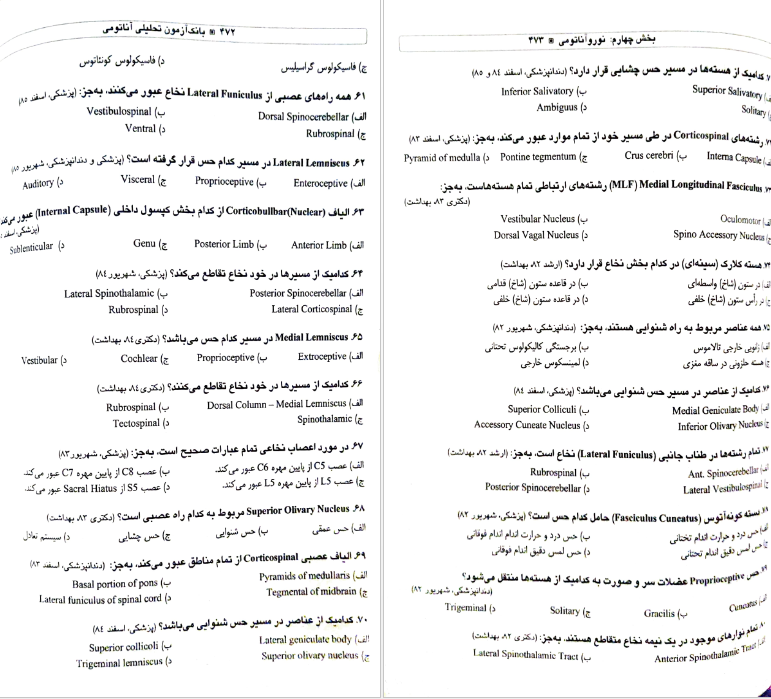 ۴۷۲ ◙ بانک آزمون تحلیلی آناتومی
ج) فاسیکولوس گراسیلیس د) فاسیکولوس کونئاتوس
۶۱. همه راه‌های عصبی از Lateral Funiculus نخاع عبور می‌کنند، به‌جز: (پزشکی، اسفند ۸۵)
الف) Dorsal Spinocerebellar ب) Vestibulospinal
ج) Rubrospinal د) Ventral
۶۲. Lateral Lemniscus در مسیر کدام حس قرار گرفته است؟ (پزشکی و دندانپزشکی، شهریور ۸۵)
الف) Enteroceptive ب) Proprioceptive ج) Visceral د) Auditory
۶۳. الیاف Corticobullbar(Nuclear) از کدام بخش کپسول داخلی (Internal Capsule) عبور می‌کند
(پزشکی، اسفند
الف) Anterior Limb ب) Posterior Limb ج) Genu د) Sublenticular
۶۴. کدامیک از مسیرها در خود نخاع تقاطع می‌کند؟ (پزشکی، شهریور ۸۴)
الف) Posterior Spinocerebellar ب) Lateral Spinothalamic
ج) Lateral Corticospinal د) Rubrospinal
۶۵. Medial Lemniscus در مسیر کدام حس می‌باشد؟ (دکتری ۸۴، بهداشت)
الف) Extroceptive ب) Proprioceptive ج) Cochlear د) Vestibular
۶۶. کدامیک از مسیرها در خود نخاع تقاطع می‌کنند؟ (دکتری ۸۴، بهداشت)
الف) Dorsal Column – Medial Lemniscus ب) Rubrospinal
ج) Spinothalamic د) Tectospinal
۶۷. در مورد اعصاب نخاعی تمام عبارات صحیح است، به‌جز: (پزشکی، شهریور ۸۳)
الف) عصب C5 از پایین مهره C6 عبور می‌کند. ب) عصب C8 از پایین مهره C7 عبور می‌کند.
ج) عصب L5 از پایین مهره L5 عبور می‌کند. د) عصب S5 از Sacral Hiatus عبور می‌کند.
۶۸. Superior Olivary Nucleus مربوط به کدام راه عصبی است؟ (دکتری ۸۳، بهداشت)
الف) حس عمقی ب) حس شنوایی ج) حس چشایی د) سیستم تعادل
۶۹. الیاف عصبی Corticospinal از تمام مناطق عبور می‌کند، به‌جز: (دندانپزشکی، اسفند ۸۳)
الف) Pyramids of medullaris ب) Basal portion of pons
ج) Tegmental of midbrain د) Lateral funiculus of spinal cord
۷۰. کدامیک از عناصر در مسیر حس شنوایی می‌باشد؟ (پزشکی، اسفند ۸۴)
الف) Lateral geniculate body ب) Superior collicoli
ج) Superior olivary nucleus د) Trigeminal lemniscus
بخش چهارم: نوروآناتومی ◙ ۴۷۳
کدامیک از هسته‌ها در مسیر حس چشایی قرار دارد؟ (دندانپزشکی، اسفند ۸۴ و ۸۵)
Superior Salivatory ب) Inferior Salivatory
Solitary د) Ambiguus
رشته‌های Corticospinal در طی مسیر خود از تمام موارد عبور می‌کند، به‌جز: (پزشکی، اسفند ۸۳)
Interna Capsule ب) Crus cerebri ج) Pontine tegmentum د) Pyramid of medulla
Medial Longitudinal Fasciculus (MLF) رشته‌های ارتباطی تمام هسته‌هاست، به‌جز:
(دکتری ۸۳، بهداشت)
Oculomotor ب) Vestibular Nucleus
Spino Accessory Nucleus د) Dorsal Vagal Nucleus
۷۴. هسته کلارک (سینه‌ای) در کدام بخش نخاع قرار دارد؟ (ارشد ۸۲، بهداشت)
الف) در ستون (شاخ) واسطه‌ای ب) در قاعده ستون (شاخ) قدامی
ج) در رأس ستون (شاخ) خلفی د) در قاعده ستون (شاخ) خلفی
۷۵. همه عناصر مربوط به راه شنوایی هستند، به‌جز: (دندانپزشکی، شهریور ۸۲)
الف) زانویی خارجی تالاموس ب) برجستگی کالیکولوس تحتانی
ج) هسته حلزونی در ساقه مغزی د) لمنیسکوس خارجی
۷۶. کدامیک از عناصر در مسیر حس شنوایی می‌باشد؟ (پزشکی، اسفند ۸۴)
الف) Medial Geniculate Body ب) Superior Colliculi
ج) Inferior Olivary Nucleus د) Accessory Cuneate Nucleus
۷۷. تمام رشته‌ها در طناب جانبی (Lateral Funiculus) نخاع است، به‌جز: (ارشد ۸۲، بهداشت)
الف) Ant. Spinocerebellar ب) Rubrospinal
ج) Lateral Vestibulospinal د) Posterior Spinocerebellar
۷۸. دسته کونه‌آتوس (Fasciculus Cuneatus) حامل کدام حس است؟ (پزشکی، شهریور ۸۲)
الف) حس درد و حرارت اندام تحتانی ب) حس درد و حرارت اندام اندام فوقانی
ج) حس لمس دقیق اندام تحتانی د) حس لمس دقیق اندام فوقانی
۷۹. حس Proprioceptive عضلات سر و صورت به کدامیک از هسته‌ها منتقل می‌شود؟
(دندانپزشکی، شهریور ۸۲)
الف) Cuneatus ب) Gracilis ج) Solitary د) Trigeminal
۸۰. تمام نوارهای موجود در یک نیمه نخاع متقاطع هستند، به‌جز: (دکتری ۸۲، بهداشت)
الف) Anterior Spinothalamic Tract ب) Lateral Spinothalamic Tract